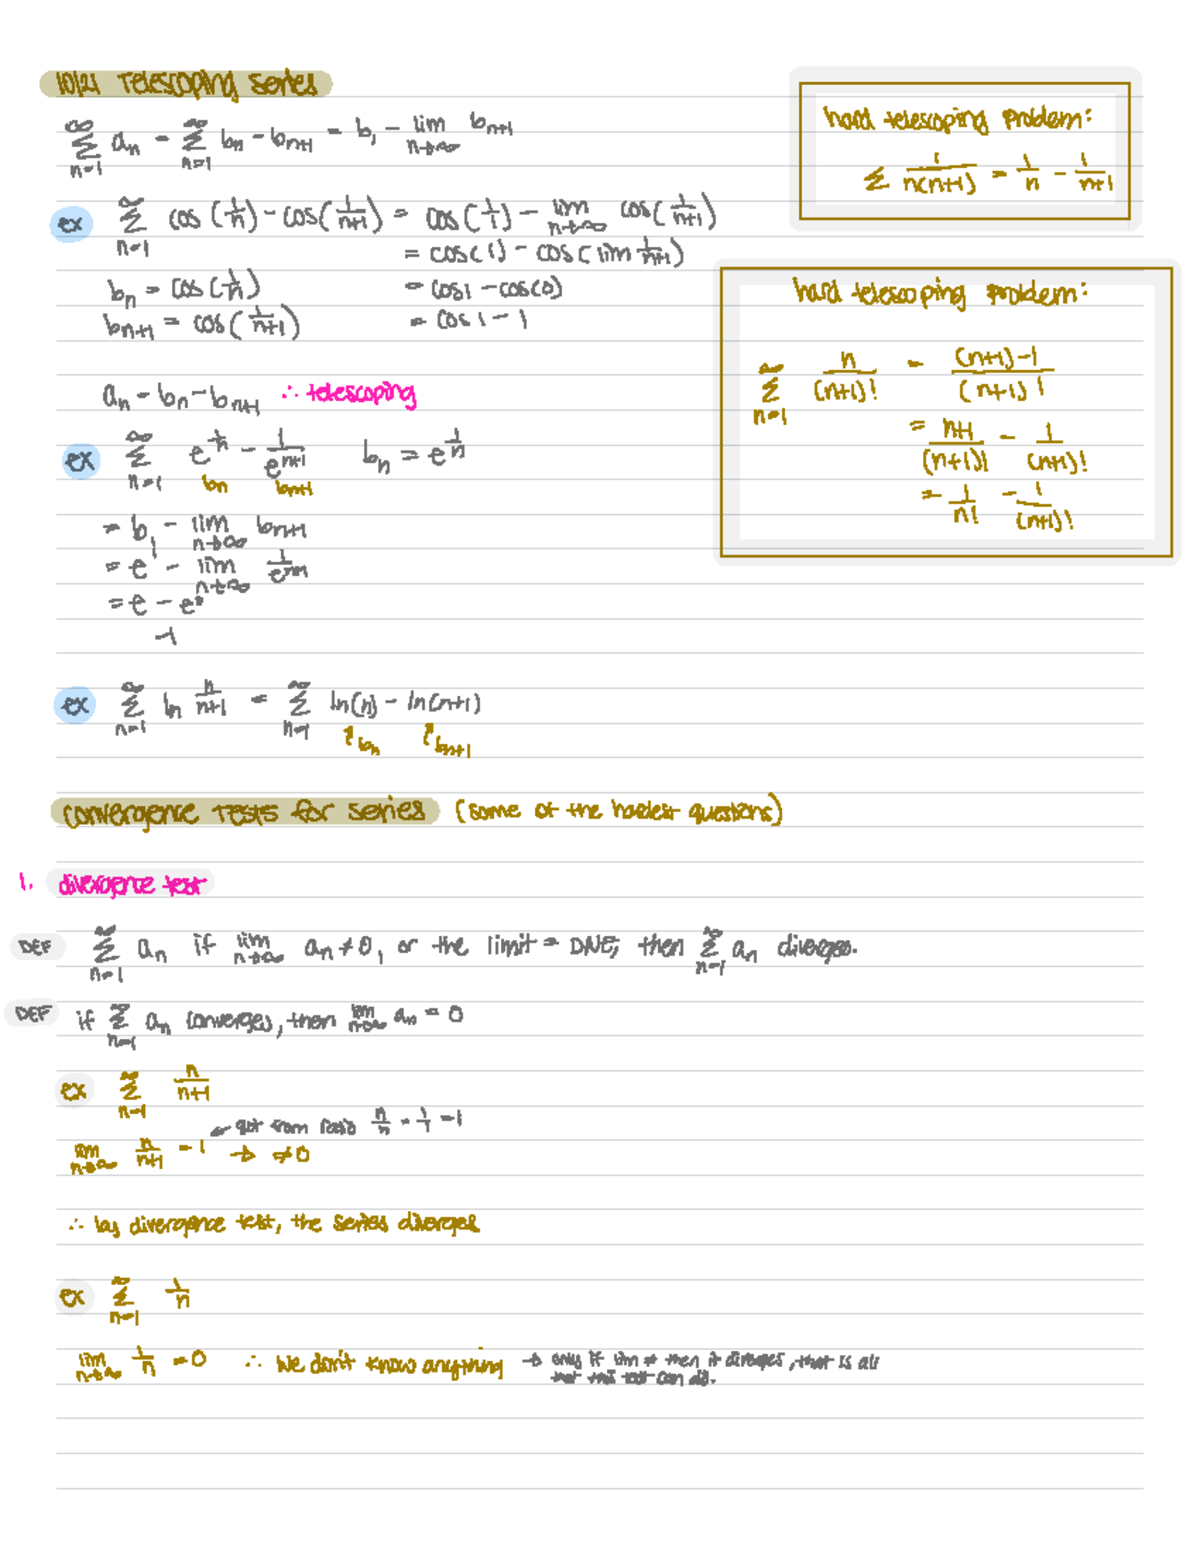 10/21 Telescoping Series
∞Σn=1 an = ∞Σn=1 bn - bn+1 = b1 - lim n→∞ bn+1
hard telescoping problem:
Σ 1/n(n+1) = 1/n - 1/n+1
ex ∞Σn=1 cos(1/n) - cos(1/n+1) = cos(1/1) - lim n→∞ cos(1/n+1)
= cos(1) - cos(lim 1/n+1)
bn = cos(1/n) = cos1 - cos(0)
bn+1 = cos(1/n+1) = cos1 - 1
hard telescoping problem:
∞Σn=1 n/(n+1)! = (n+1)-1/(n+1)!
= n+1/(n+1)! - 1/(n+1)!
= 1/n! - 1/(n+1)!
an = bn - bn+1 ∴ telescoping
ex ∞Σn=1 e^1/n - 1/e^n+1 bn = e^1/n
bn bn+1
= b1 - lim n→∞ bn+1
= e^1 - lim n→∞ 1/e^n+1
= e - e^0
-1
ex ∞Σn=1 ln n/n+1 = ∞Σn=1 ln(n) - ln(n+1)
↑bn ↑bn+1
convergence Tests for series (some of the hardest questions)
1. divergence test
DEF ∞Σn=1 an if lim n→∞ an ≠ 0, or the limit = DNE, then ∞Σn=1 an diverges.
DEF if ∞Σn=1 an converges, then lim n→∞ an = 0
ex ∞Σn=1 n/n+1
← got from ratio n/n = 1/1 = 1
lim n→∞ n/n+1 = 1 → ≠0
∴ by divergence test, the series diverges
ex ∞Σn=1 1/n
lim n→∞ 1/n = 0 ∴ We don't know anything → only if lim ≠ then it diverges, that is all
that this test can do.